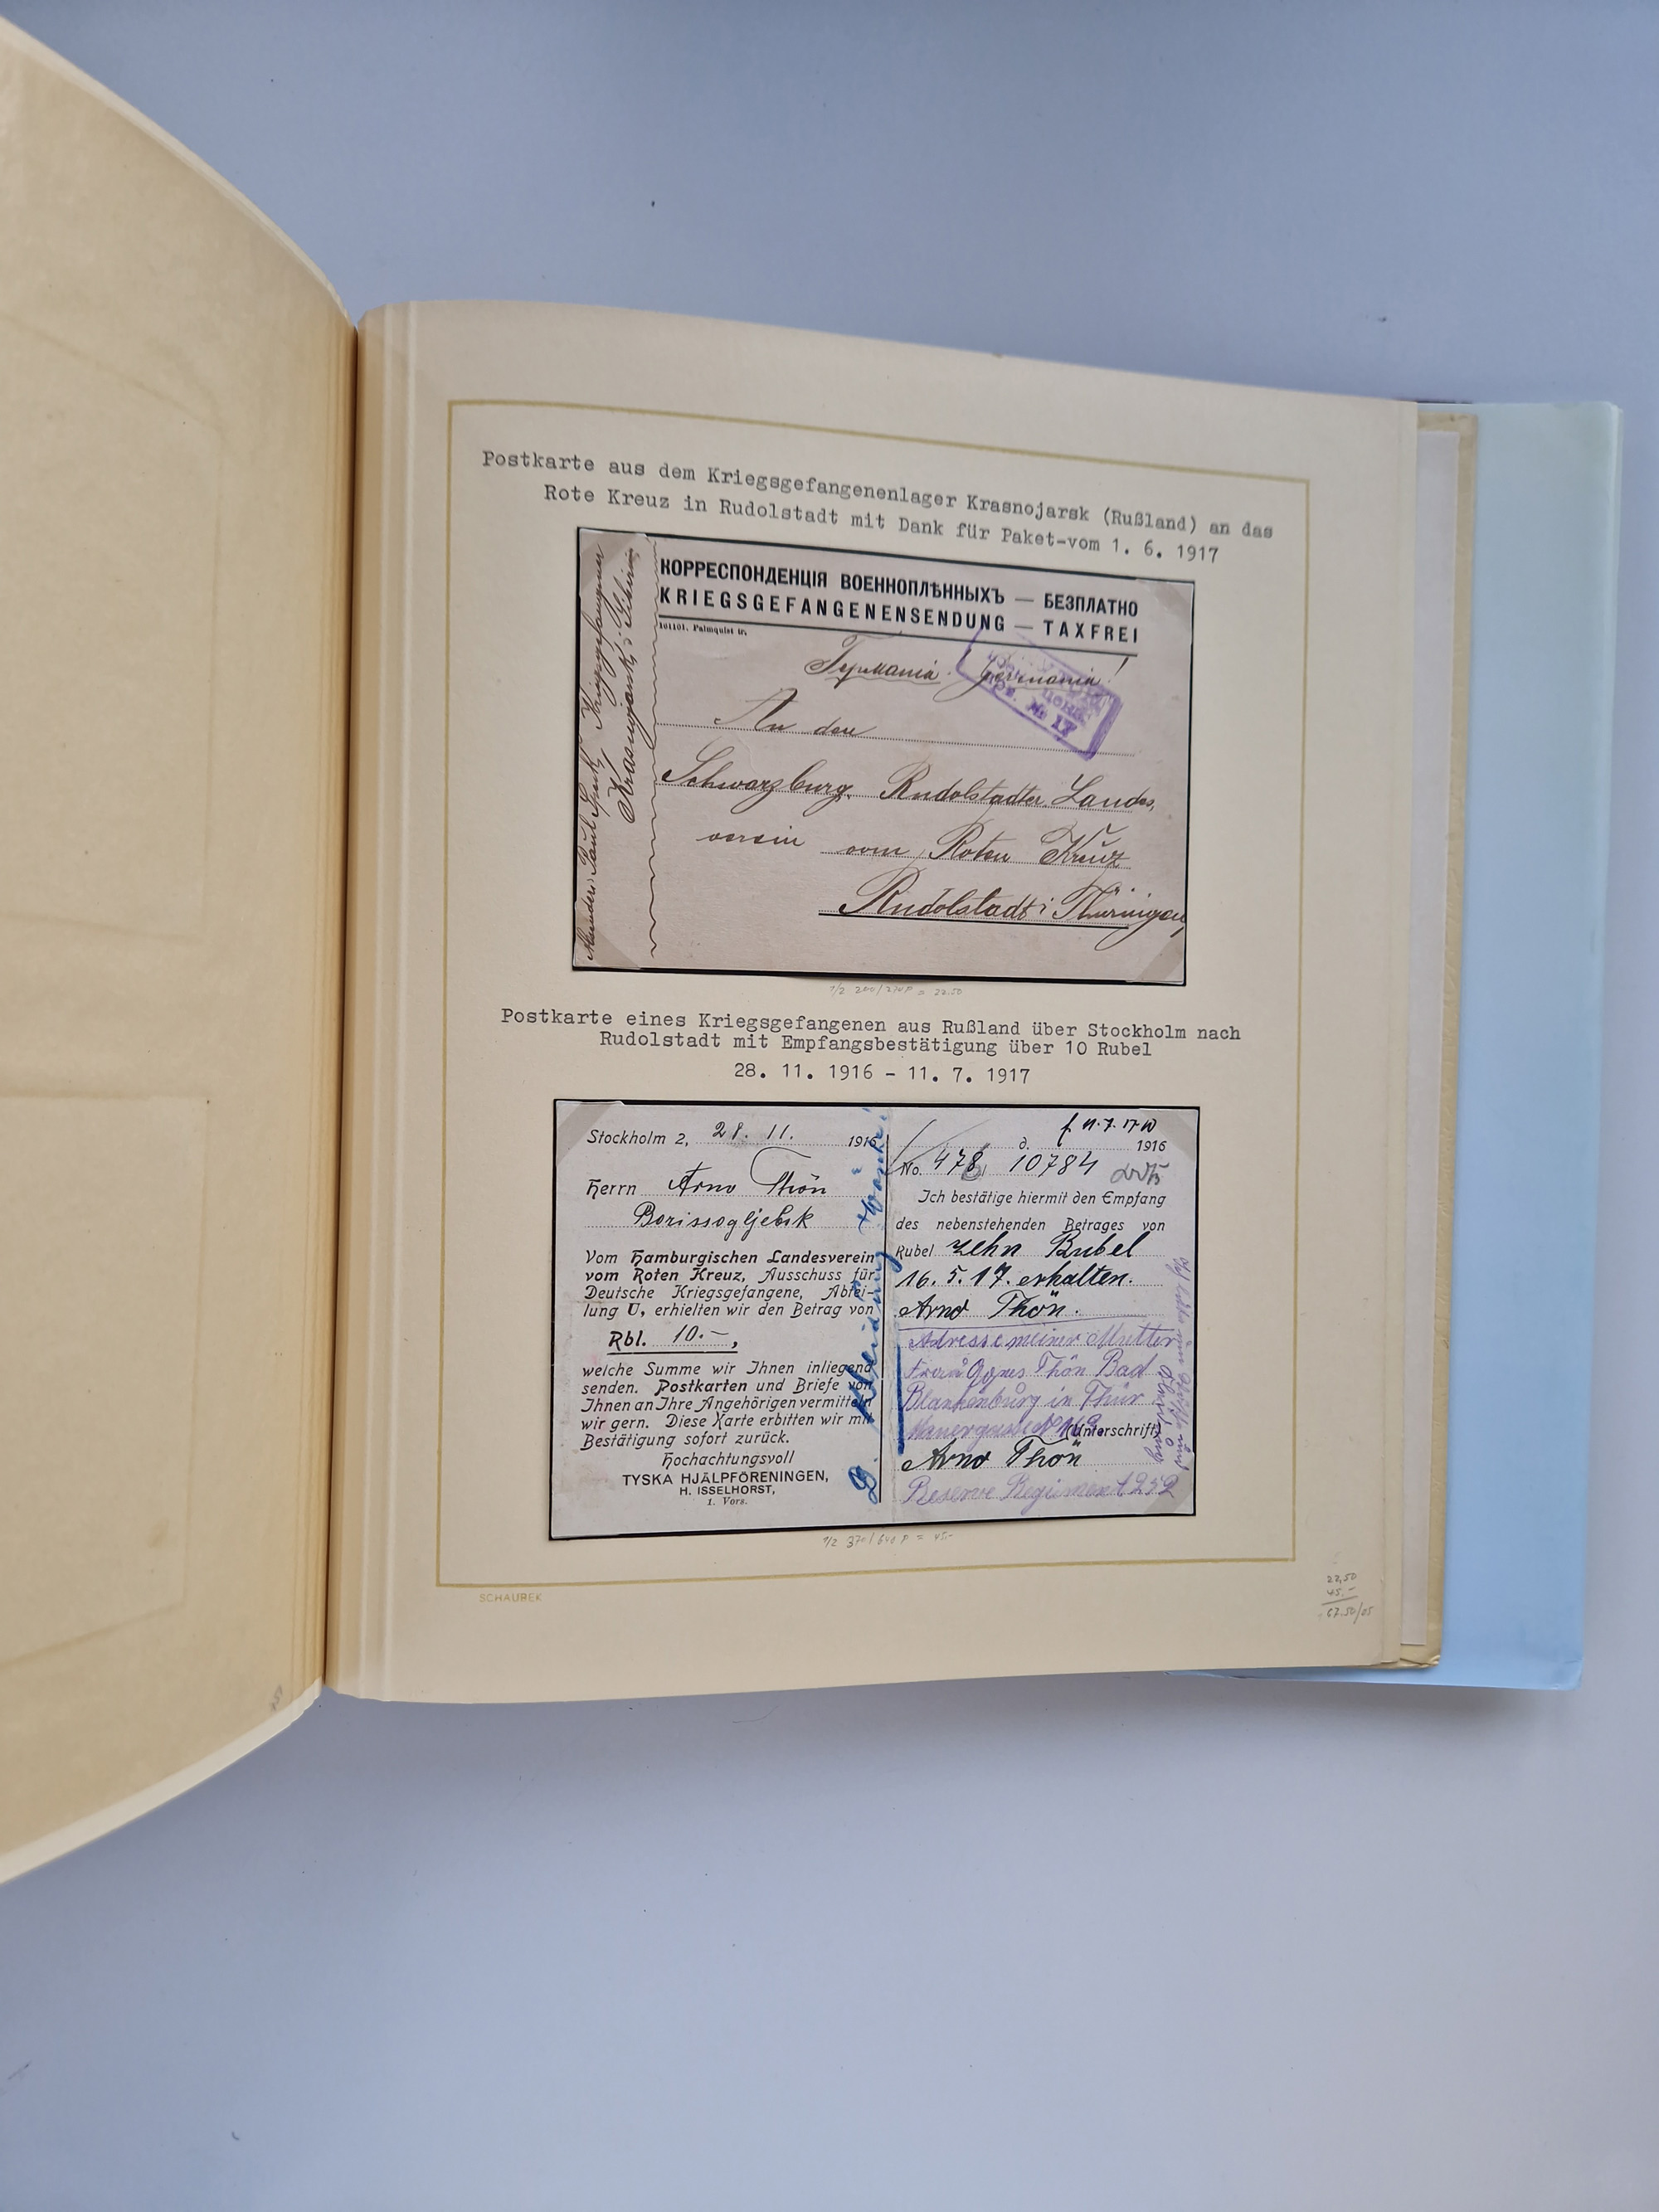 Postkarte aus dem Kriegsgefangenenlager Krasnojarsk (Rußland) an das
Rote Kreuz in Rudolstadt mit Dank für Paket-vom 1. 6. 1917
КОРРЕСПОНДЕНЦІЯ ВОЕННОПЛѢННЫХЪ — БЕЗПЛАТНО
KRIEGSGEFANGENENSENDUNG — TAXFREI
101101. Palmquist tr.
Германia. Germania!
An den
Schwarzburg. Rudolstadter Landes,
verein vom Roten Kreuz
Rudolstadt i Thüringen
Kriegsgefangener
Krasnojarsk, Sibirien
№ 17
1/2 200/270 P = 22.50
Postkarte eines Kriegsgefangenen aus Rußland über Stockholm nach
Rudolstadt mit Empfangsbestätigung über 10 Rubel
28. 11. 1916 – 11. 7. 1917
Stockholm 2, 28. 11. 1916
Herrn Arno Thön
Borissogljebsk
Vom Hamburgischen Landesverein
vom Roten Kreuz, Ausschuss für
Deutsche Kriegsgefangene, Abtei-
lung U, erhielten wir den Betrag von
Rbl. 10.–,
welche Summe wir Ihnen inliegend
senden. Postkarten und Briefe von
Ihnen an Ihre Angehörigen vermitteln
wir gern. Diese Karte erbitten wir mit
Bestätigung sofort zurück.
Hochachtungsvoll
TYSKA HJÄLPFÖRENINGEN,
H. ISSELHORST,
1. Vors.
Kleidung
11.7.17
d. 1916
No. 478 10784
Ich bestätige hiermit den Empfang
des nebenstehenden Betrages von
Rubel zehn Rubel
16. 5. 17. erhalten.
Arno Thön.
Adresse meiner Mutter
Frau Agnes Thön Bad
Blankenburg in Thür
Mauergasse
(Unterschrift)
Arno Thön
Reserve Regiment 252
1/2 370/640 P = 45.-
SCHAUBEK
22,50
45.–
67.50/05